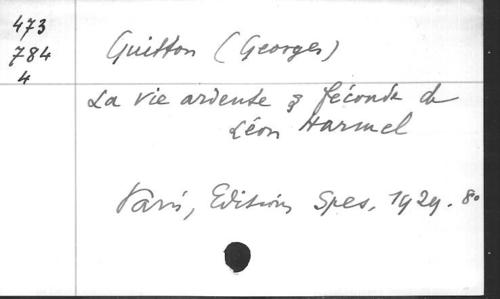 473
784
4
Guitton (Georges)
La vie ardente & féconde de
Léon Harmel
Paris, Editions Spes, 1929. 8°